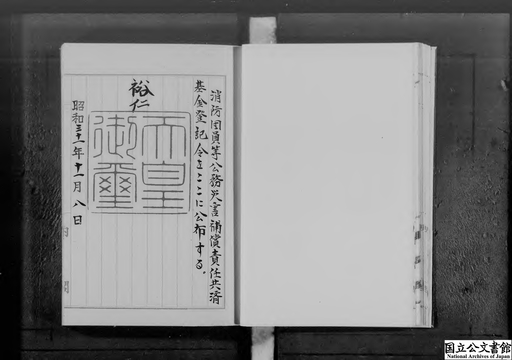 消防団員等公務災害補償責任共済
基金登記令をここに公布する。
裕仁
天皇
御璽
昭和三十一年十一月八日
国立公文書館
National Archives of Japan